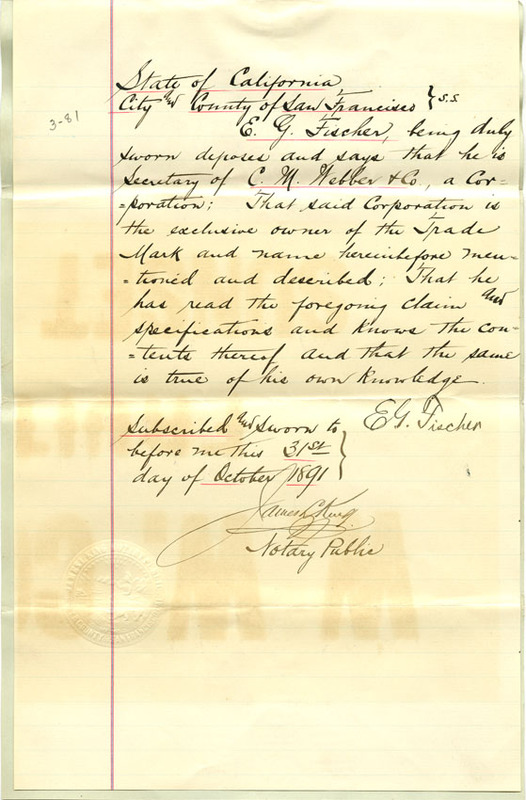 State of California
City and County of San Francisco } S.S
3-81
E. G. Fischer, being duly
sworn deposes and says that he is
Secretary of C. M. Webber & Co., a Cor-
=poration; That said Corporation is
the exclusive owner of the Trade
Mark and name hereinbefore men-
=tioned and described; That he
has read the foregoing claim and
specifications and knows the con-
=tents thereof and that the same
is true of his own knowledge.
Subscribed and sworn to
before me this 31st
day of October 1891
E. G. Fischer
James L. King
Notary Public